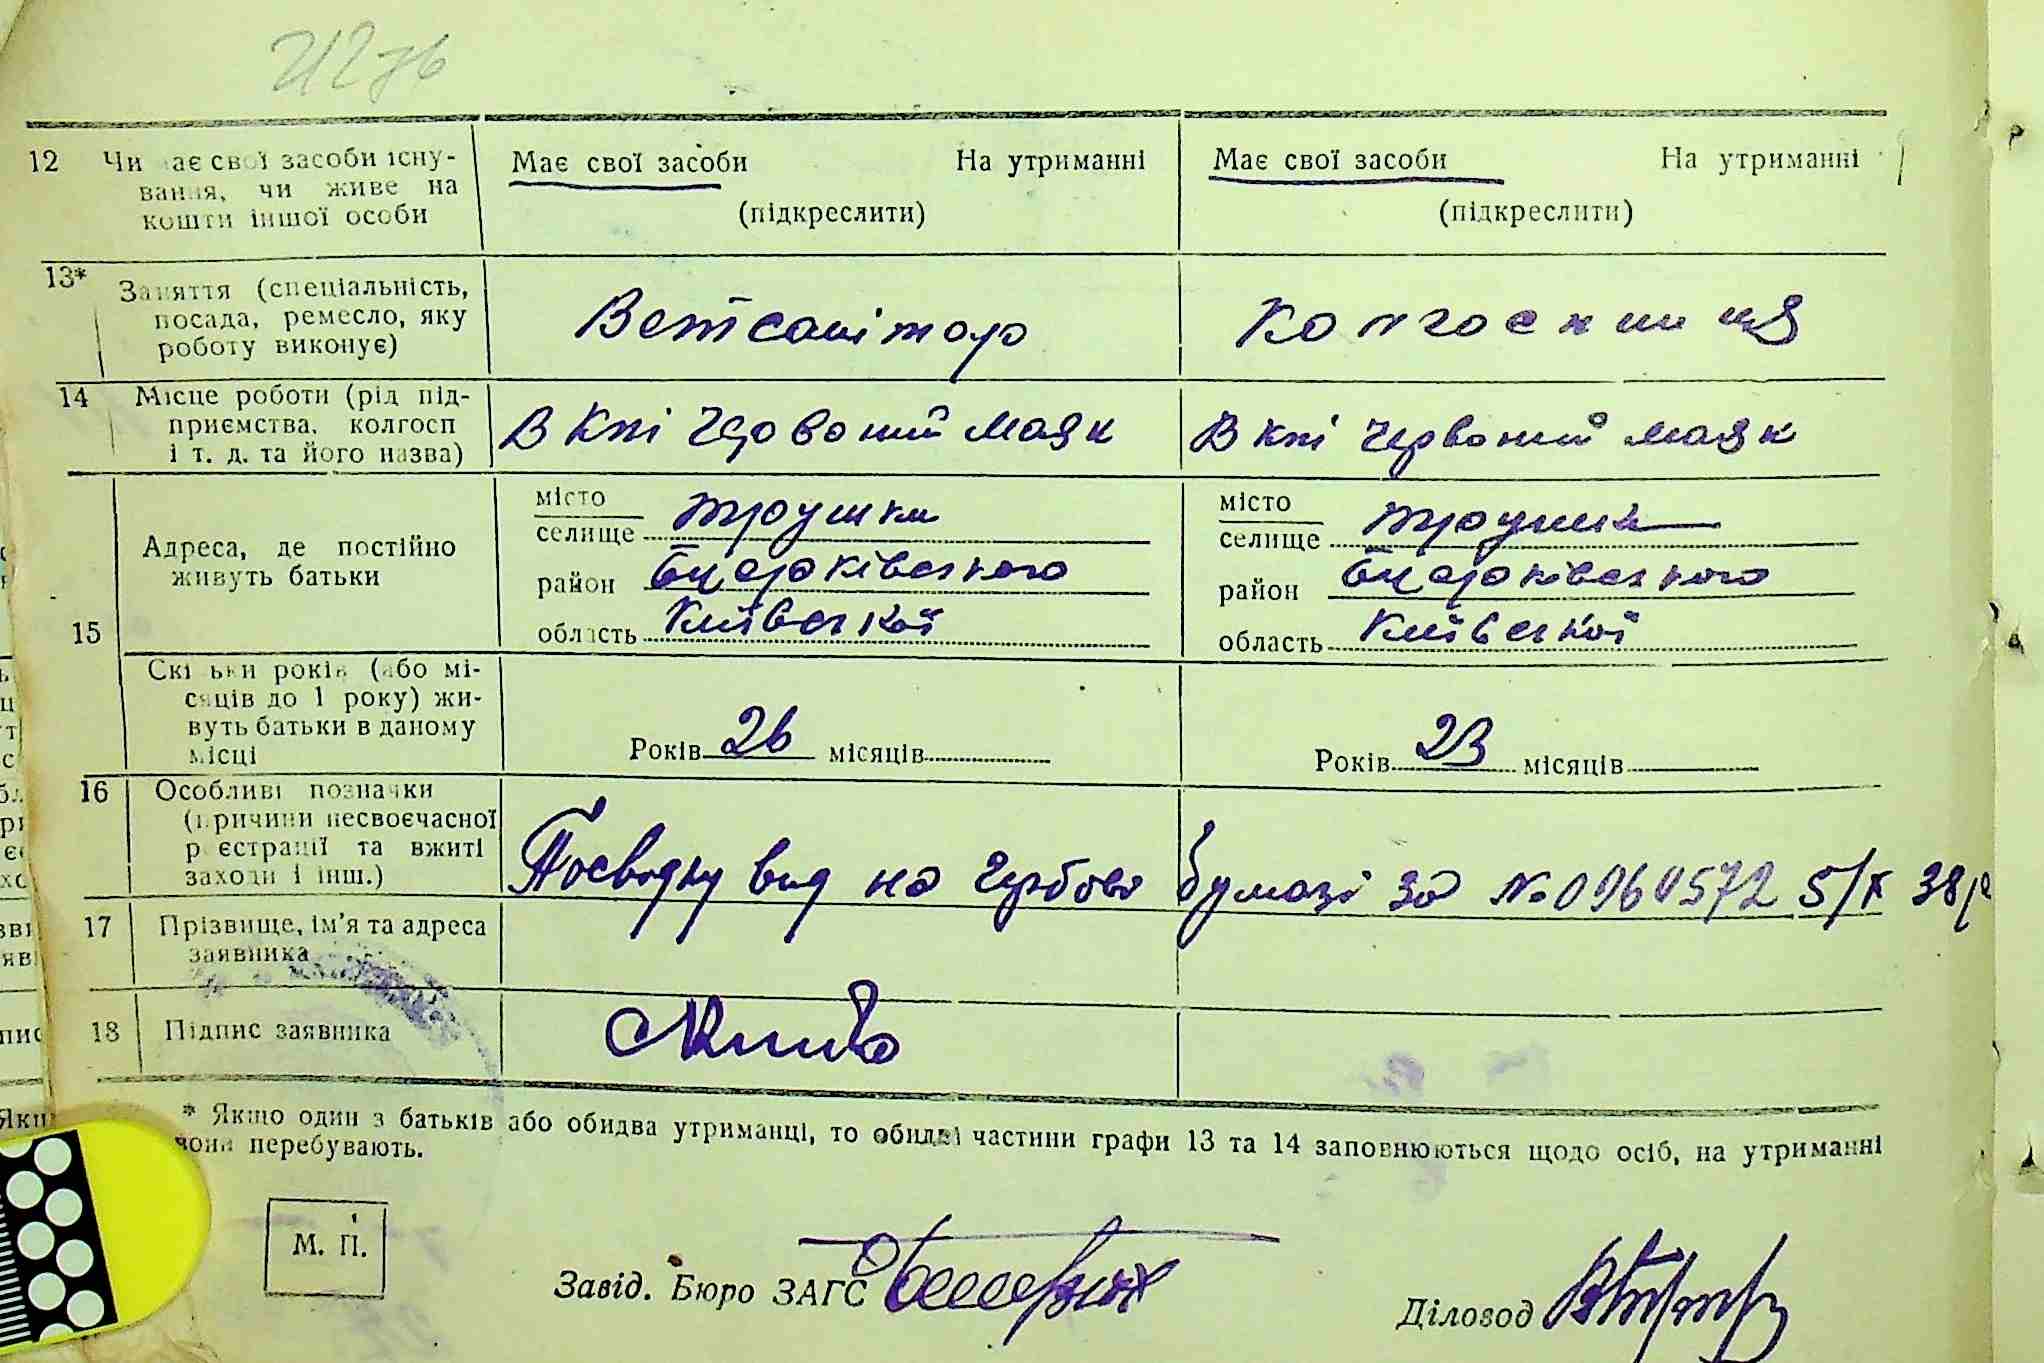 12 Чи має свої засоби існу-
вання, чи живе на
кошти іншої особи
Має свої засоби На утриманні
(підкреслити)
Має свої засоби На утриманні
(підкреслити)
13* Заняття (спеціальність,
посада, ремесло, яку
роботу виконує)
Ветсанітар
Колгоспниця
14 Місце роботи (рід під-
приємства, колгосп
і т. д. та його назва)
В к-пі Червоний маяк
В к-пі Червоний маяк
15 Адреса, де постійно
живуть батьки
місто
селище Трушки
район Білоцерківського
область Київської
місто
селище Трушки
район Білоцерківського
область Київської
Скільки років (або мі-
сяців до 1 року) жи-
вуть батьки в даному
місці
Років 26 місяців
Років 23 місяців
16 Особливі позначки
(причини несвоєчасної
реєстрації та вжиті
заходи і інш.)
Посвідку вид на гербові бумазі за № 0960572 5/X 38 р
17 Прізвище, ім'я та адреса
заявника
18 Підпис заявника
* Якщо один з батьків або обидва утриманці, то обидві частини графи 13 та 14 заповнюються щодо осіб, на утриманні
вони перебувають.
М. П.
Завід. Бюро ЗАГС
Діловод